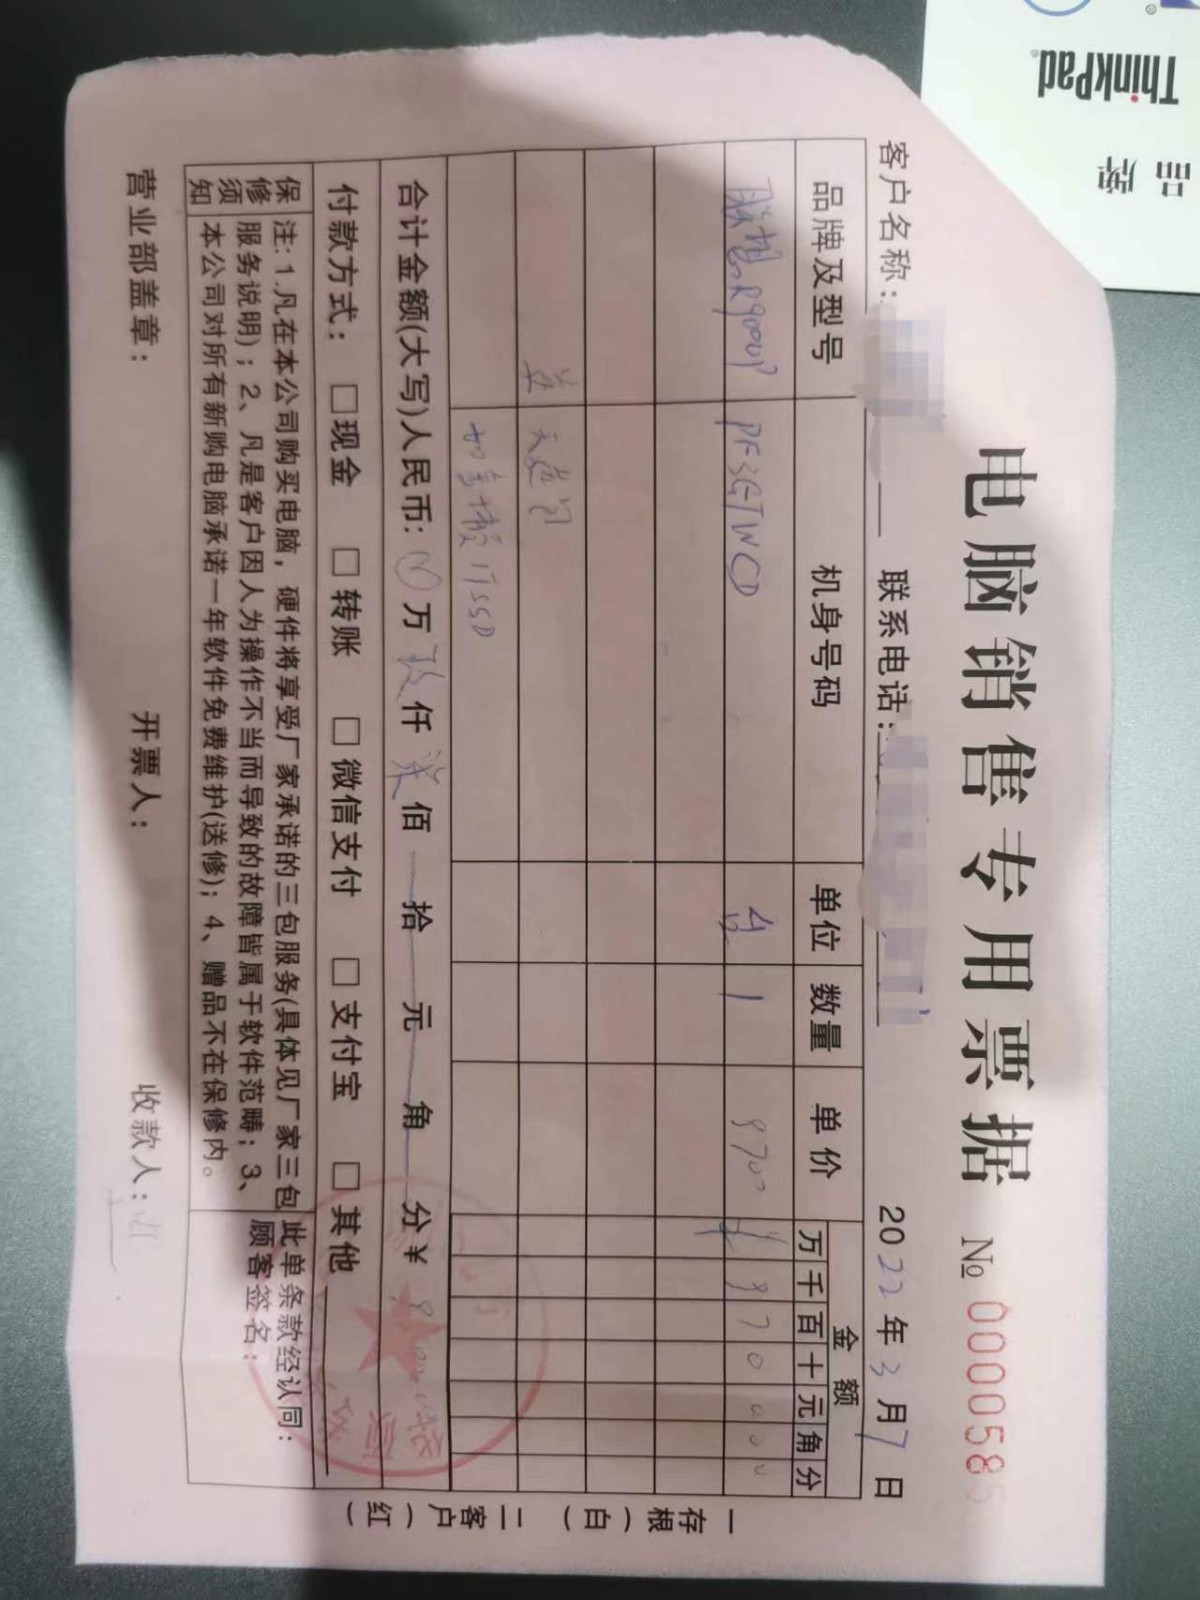 ThinkPad
品牌
电脑销售专用票据 № 000058
客户名称: 联系电话: 2022年3月7日
品牌及型号 机身号码 单位 数量 单价 金额
万 千 百 十 元 角 分
联想R9000P PF3GTWCD 台 1 9700 ¥ 9 7 0 0 0 0
合计金额(大写)人民币: 万 玖 仟 柒 佰 拾 元 角 分 ¥
付款方式: □现金 □转账 □微信支付 □支付宝 □其他
保修须知
注:1.凡在本公司购买电脑,硬件将享受厂家承诺的三包服务(具体见厂家三包
服务说明);2、凡是客户因人为操作不当而导致的故障皆属于软件范畴;3、
本公司对所有新购电脑承诺一年软件免费维护(送修);4、赠品不在保修内。
此单条款经认同:
顾客签名:
营业部盖章: 开票人: 收款人:
一存根(白) 二客户(红)